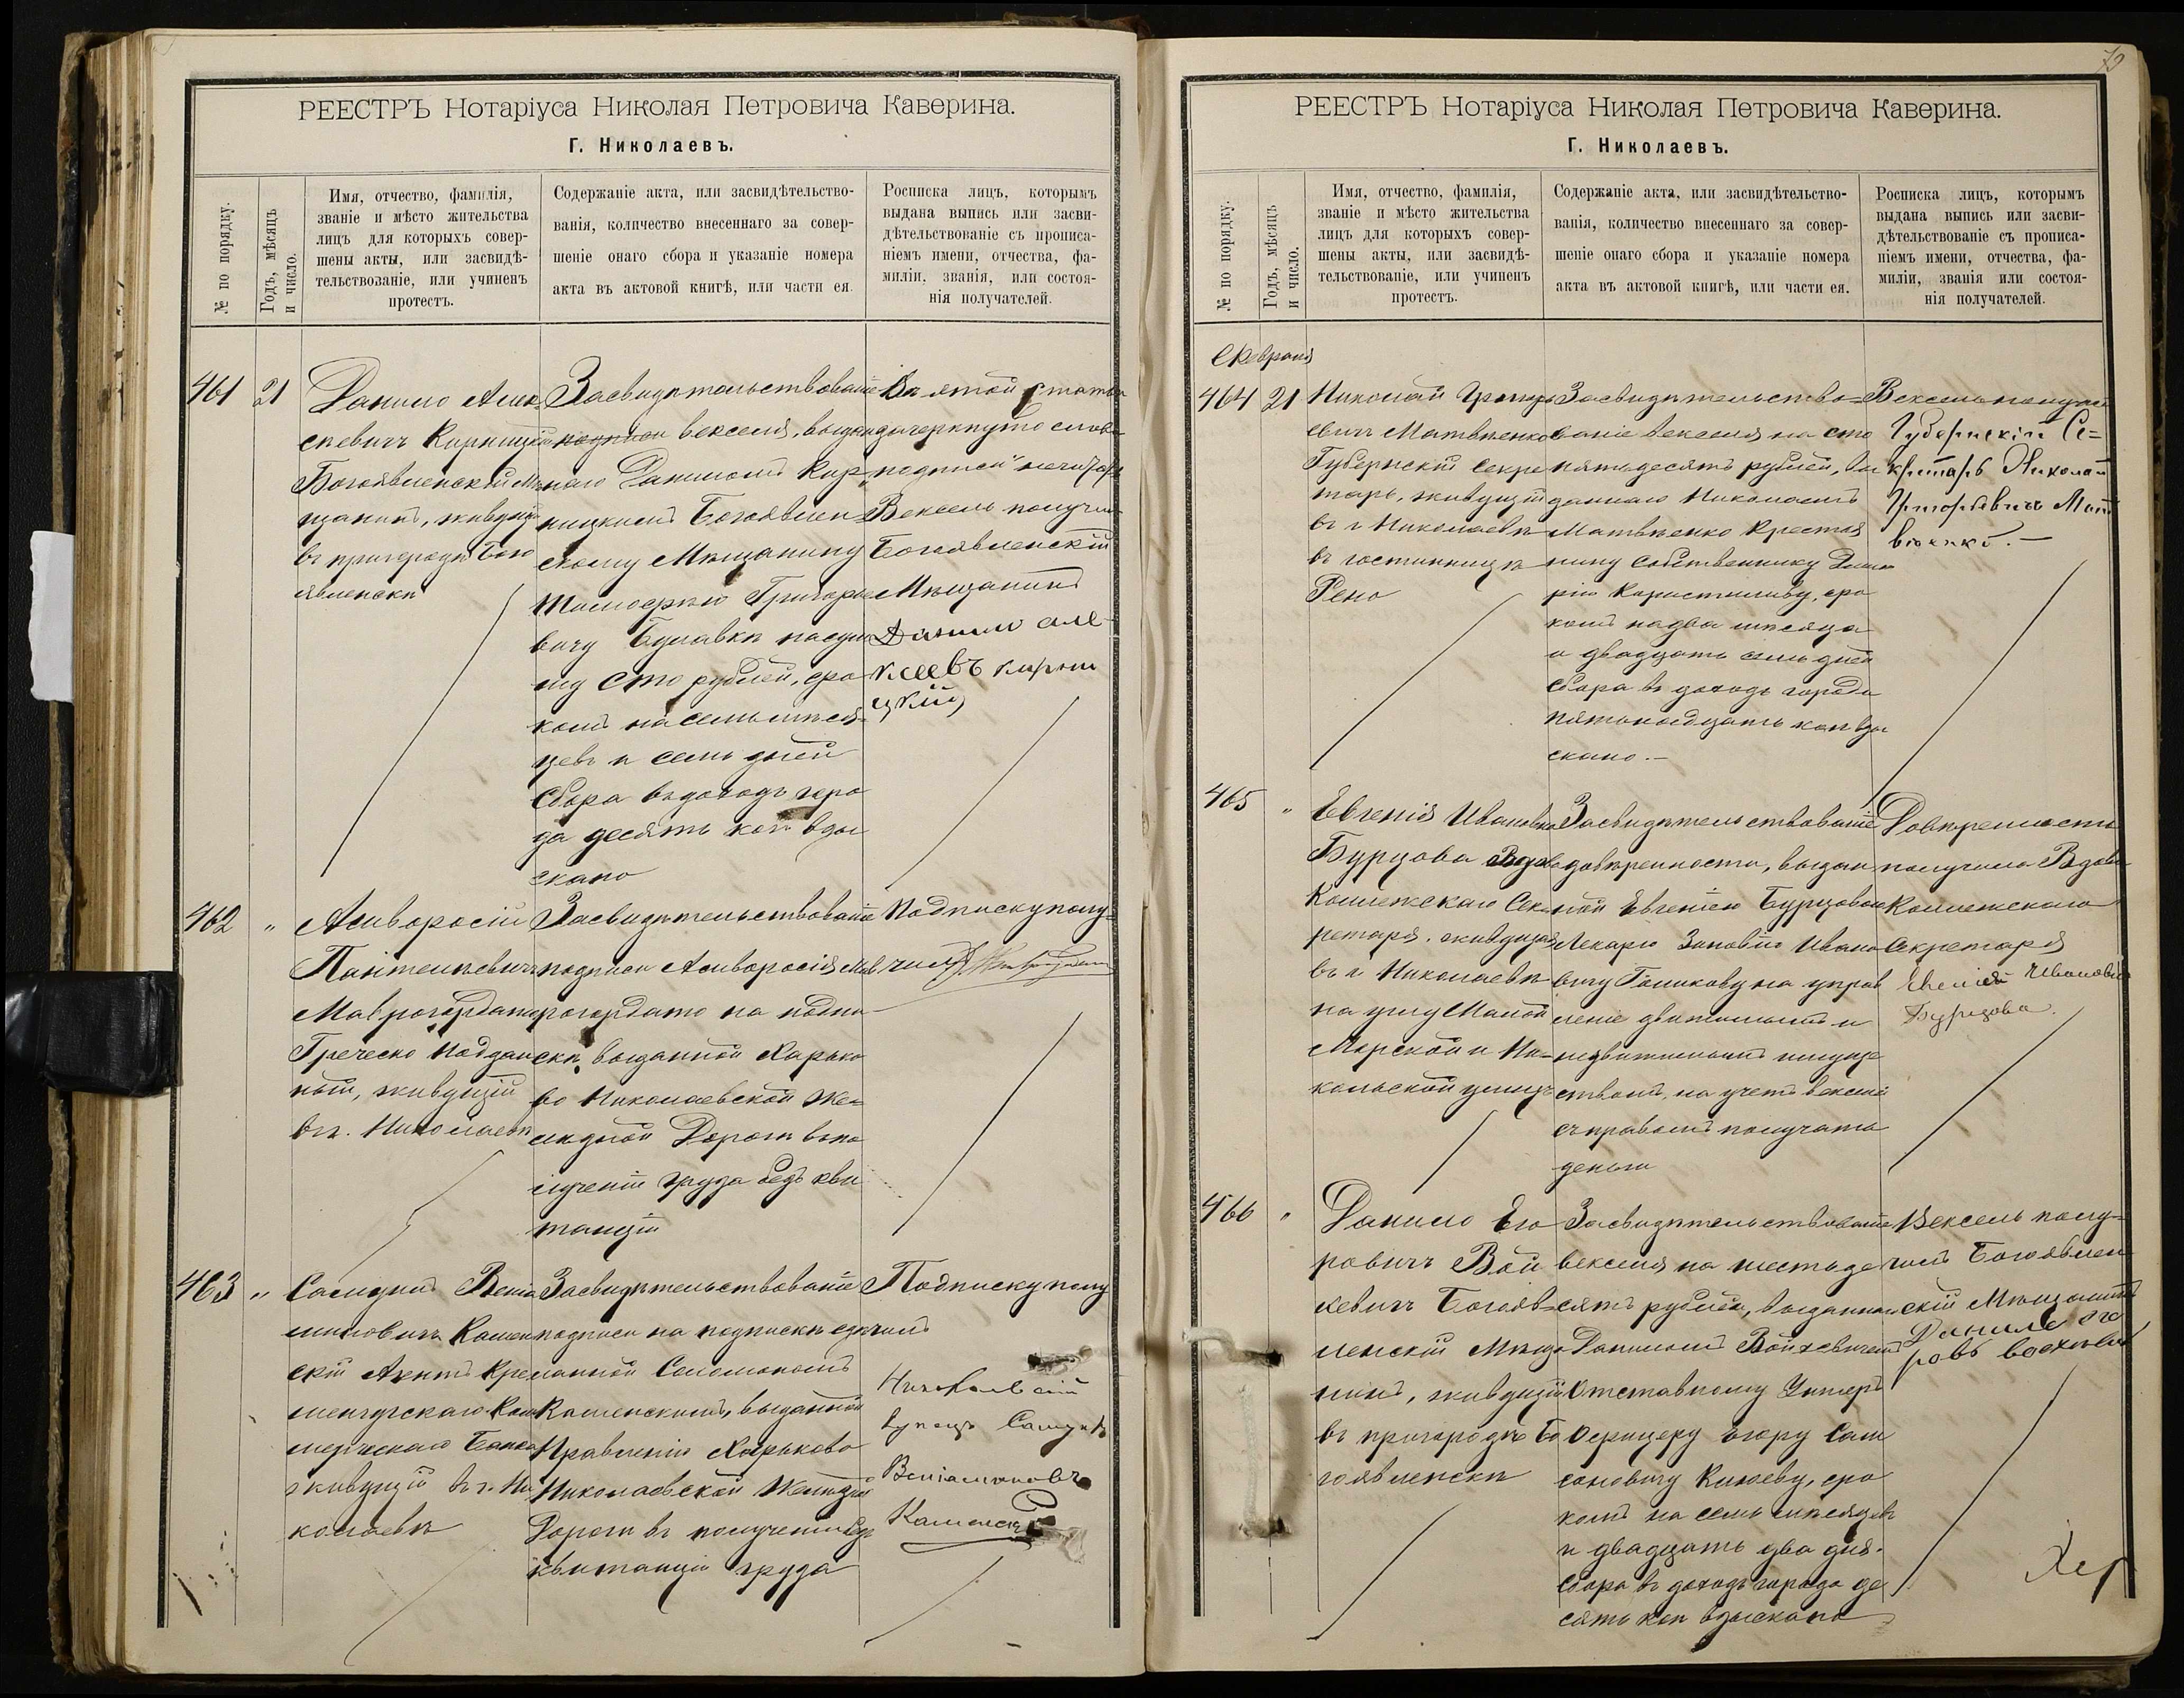 РЕЕСТРЪ Нотаріуса Николая Петровича Каверина.
Г. Николаевъ.
№ по порядку.
Годъ, мѣсяцъ
и число.
Имя, отчество, фамилія,
званіе и мѣсто жительства
лицъ для которыхъ совер-
шены акты, или засвидѣ-
тельствованіе, или учиненъ
протестъ.
Содержаніе акта, или засвидѣтельство-
ванія, количество внесеннаго за совер-
шеніе онаго сбора и указаніе номера
акта въ актовой книгѣ, или части ея.
Росписка лицъ, которымъ
выдана выпись или засви-
дѣтельствованіе съ прописа-
ніемъ имени, отчества, фа-
миліи, званія, или состоя-
нія получателей.
461
21
Данило Алек
сѣевичъ
Богоявленскій Мѣ
щанинъ, живущій
въ пригородѣ Бого
явленскѣ
Засвидѣтельствованіе
подписи векселя, выдан
наго Даниломъ Кор
ницкимъ Богоявлен
скому Мѣщанину
Тимофѣю Григорье
вичу Булавкѣ на сум
му сто рублей, сро
комъ на семь мѣся
цевъ и семь дней
Сбора въ доходъ горо
да десять коп взы
скано
Въ этой статьѣ
зачеркнуто слово
„подписи" не читать
Вексель получилъ
Богоявленскій
Мѣщанинъ
Данило але
ксеевъ
цкій
462
"
Амвросій
Пантелѣевичъ
Маврогордато
Греческо Поддан
ный, живущій
въ г. Николаевѣ
Засвидѣтельствованіе
подписи Амвросія Мав
рогордато на подпи
скѣ, выданной Харько
во Николаевской Же-
лѣзной Дорогѣ въ по
лученіи груза безъ кви
танціи
Подписку полу-
чилъ
463
"
Самуилъ Веніа
миновичъ Камен
скій Агентъ Кре
менчугскаго Ком
мерческаго Банка
живущій въ г. Ни
колаевѣ
Засвидѣтельствованіе
подписи на подпискѣ сдѣ
ланной
Каменскимъ, выданной
Правленію Харьково
Николаевской Желѣзной
Дороги въ полученіи безъ
квитанціи груза
Подписку полу
чилъ
Николаевскій
купецъ Самуилъ
Веніаминовъ
Каменскій
РЕЕСТРЪ Нотаріуса Николая Петровича Каверина.
Г. Николаевъ.
№ по порядку.
Годъ, мѣсяцъ
и число.
Имя, отчество, фамилія,
званіе и мѣсто жительства
лицъ для которыхъ совер-
шены акты, или засвидѣ-
тельствованіе, или учиненъ
протестъ.
Содержаніе акта, или засвидѣтельство-
ванія, количество внесеннаго за совер-
шеніе онаго сбора и указаніе номера
акта въ актовой книгѣ, или части ея.
Росписка лицъ, которымъ
выдана выпись или засви-
дѣтельствованіе съ прописа-
ніемъ имени, отчества, фа-
миліи, званія или состоя-
нія получателей.
Февраля
464
21
Николай Григорь
евичъ Матвѣенко
Губернскій Секре
тарь, живущій
въ г Николаевѣ
въ гостинницѣ
Рено
Засвидѣтельство-
ваніе векселя на сто
пятьдесятъ рублей, вы
даннаго Николаемъ
Матвѣенко Крестья
нину Собственнику Дмит
рію сро
комъ на два мѣсяца
и двадцать семь дней
Сбора въ доходъ города
пятьнадцать коп взы
скано.-
Вексель получилъ
Губернскій Се-
кретарь Николай
Григорьевичъ Мат
вѣенко.-
465
"
Евгенія Ивановна
Бурцова Вдова
Коллежскаго Сек
ретаря. живущая
въ г Николаевѣ
на углу Малой
Морской и Ни-
кольской улицъ
Засвидѣтельствованіе
довѣренности, выдан
ной Евгеніею Бурцовою
Лекарю Зиновію Ивано
вичу Голикову на управ
леніе движимымъ и
недвижимымъ имуще
ствомъ, на учетъ векселей
съ правомъ получать
деньги
Довѣренность
получила Вдова
Коллежскаго
Секретаря
Евгенія Ивановна
Бурцова.
466
"
Данило Его
ровичъ Вой
кевичъ Богояв-
ленскій Мѣща
нинъ, живущій
въ пригородѣ Бо
гоявленскѣ
Засвидѣтельствованіе
векселя на шестьде
сятъ рублей, выданнаго
Даниломъ Войкевичемъ
Отставному Унтеръ
Офицеру Егору Сам
соновичу Князеву, сро
комъ на семь мѣсяцевъ
и двадцать два дня.
Сбора въ доходъ города де
сять коп взыскано
Вексель полу-
чилъ Богоявлен
скій Мѣщанинъ
Данило Его
ровъ
Хер